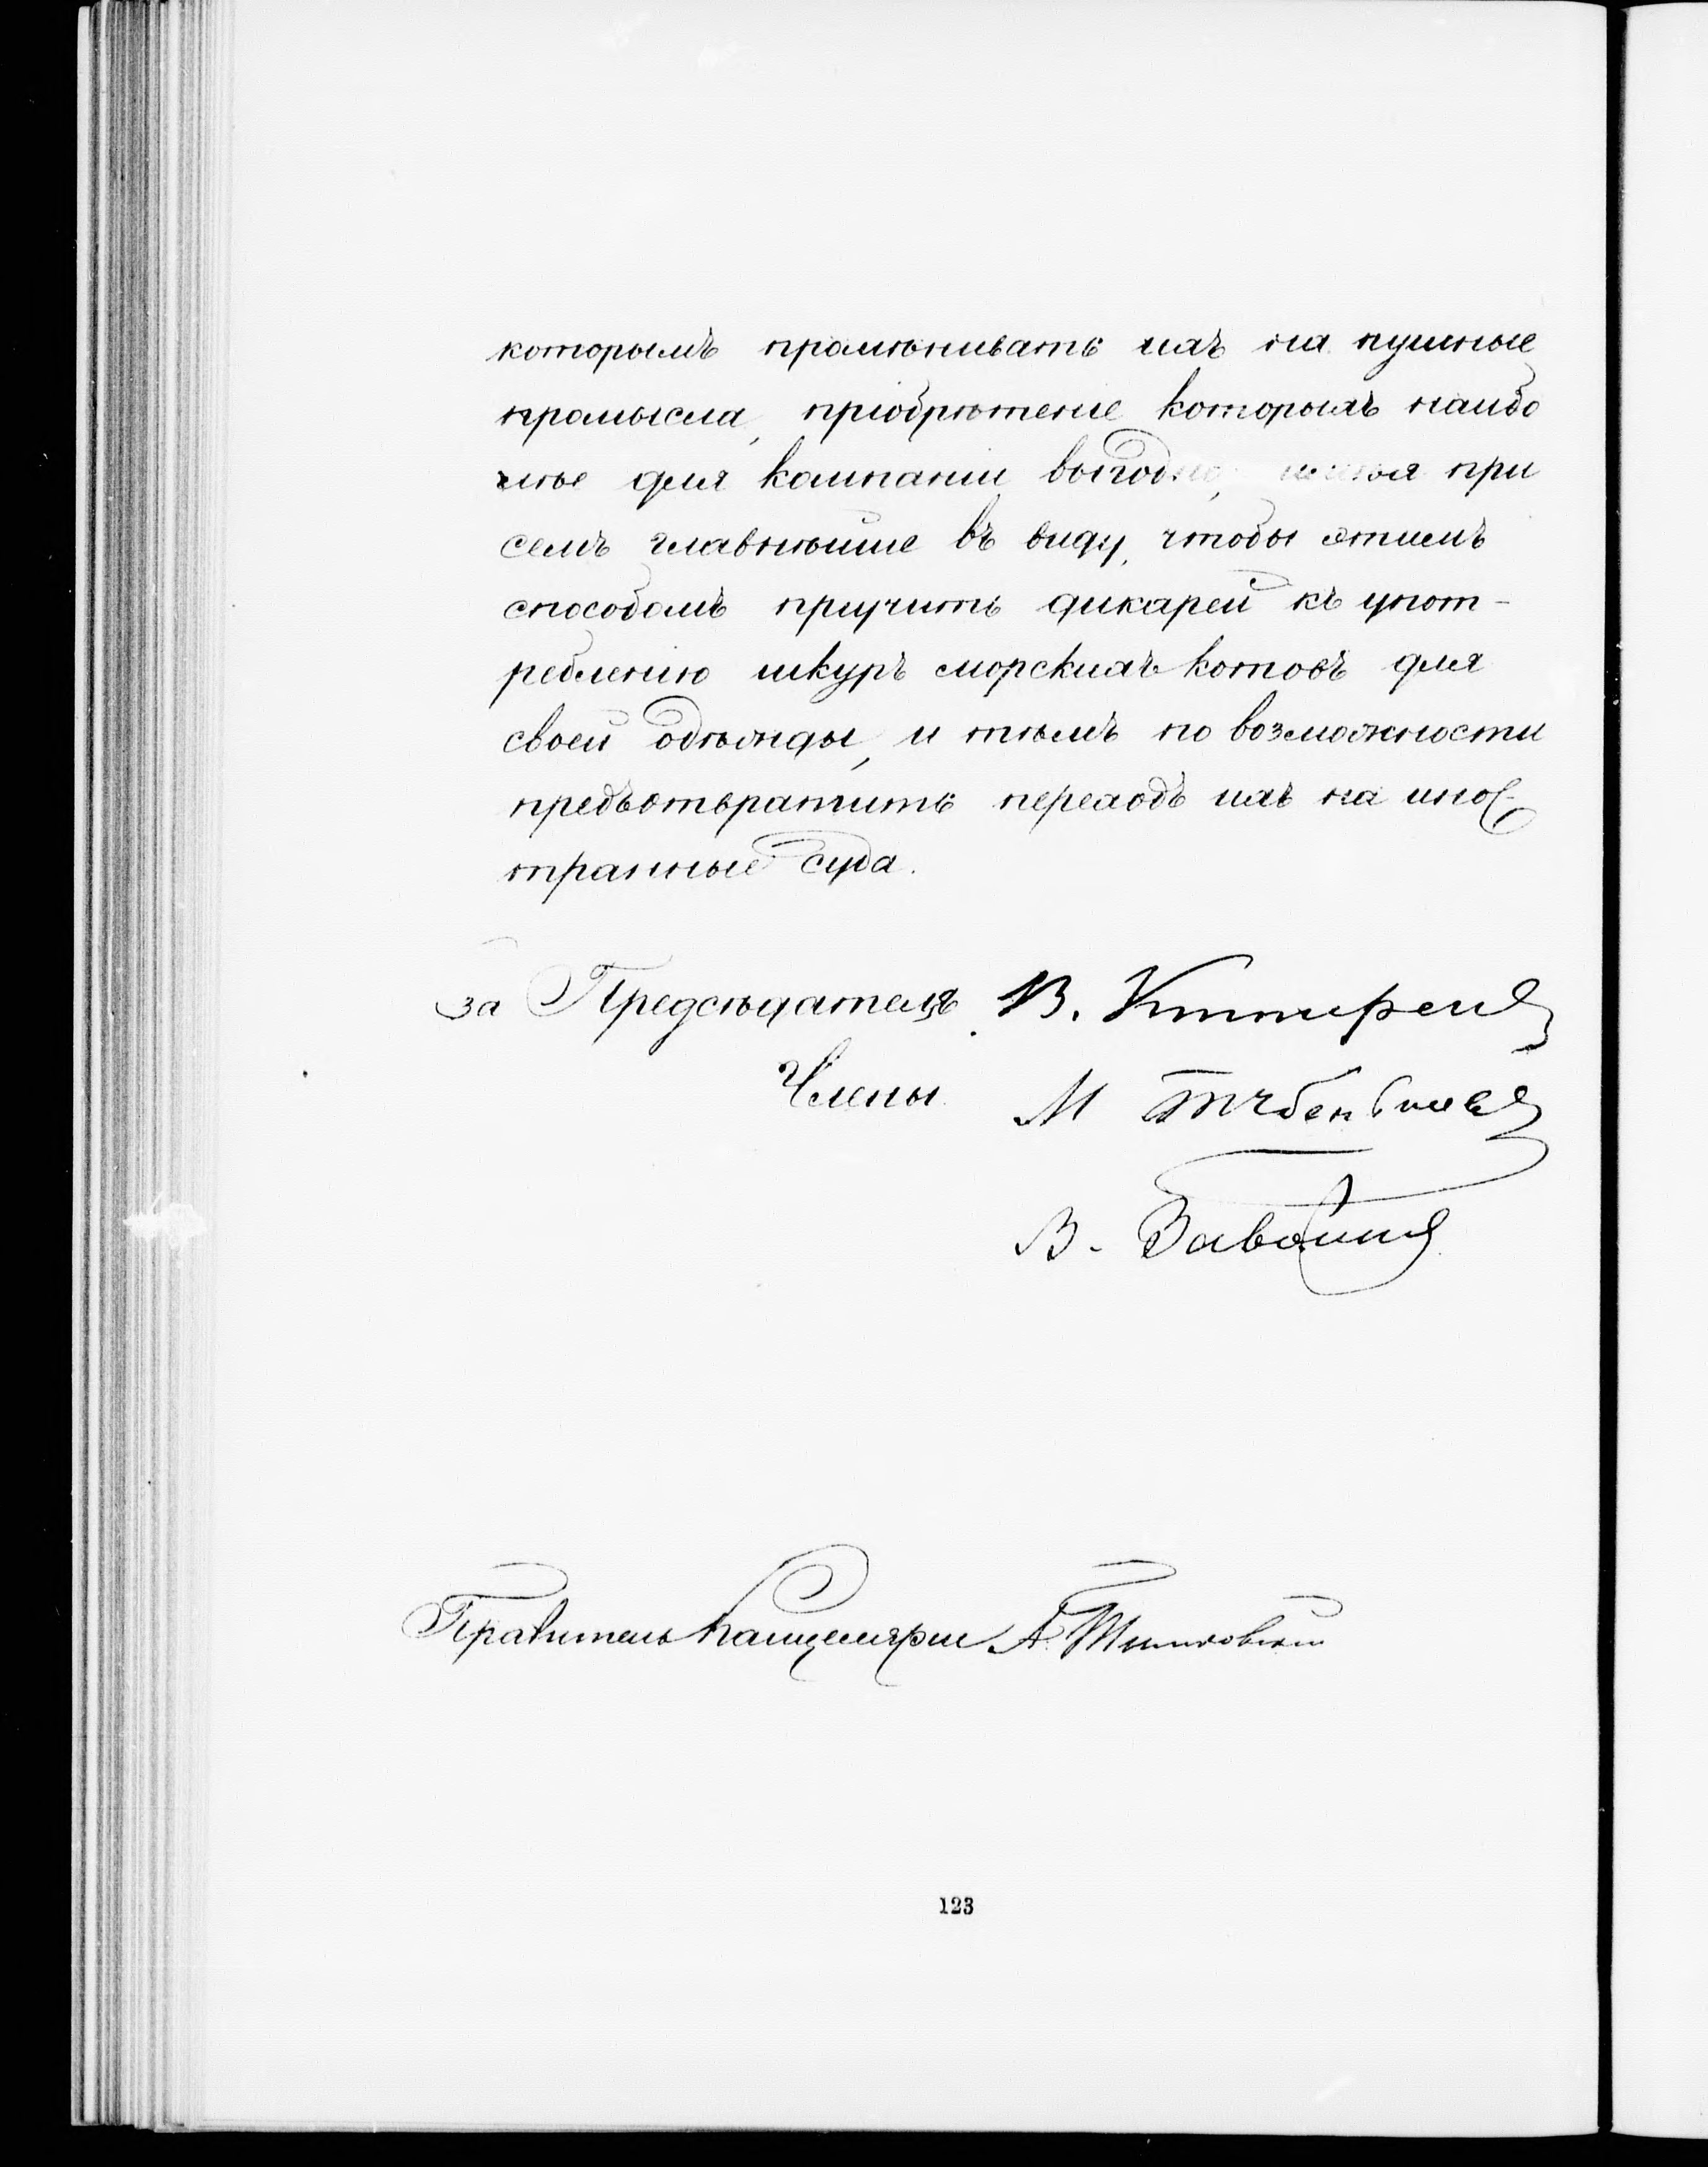 которымъ промѣнивать ихъ на пушные
промысла, пріобрѣтеніе которыхъ наибо
лѣе для компаніи выгодно, имѣя при
семъ главнѣйше въ виду, чтобы этимъ
способомъ пріучить дикарей къ упот-
ребленію шкуръ морскихъ котовъ для
своей одѣжды, и тѣмъ по возможности
предъотвратить переходъ ихъ на инос-
транные суда.
за Предсѣдателя В.
Члены М
В. Завойко
Правитель Канцеляріи А.
123